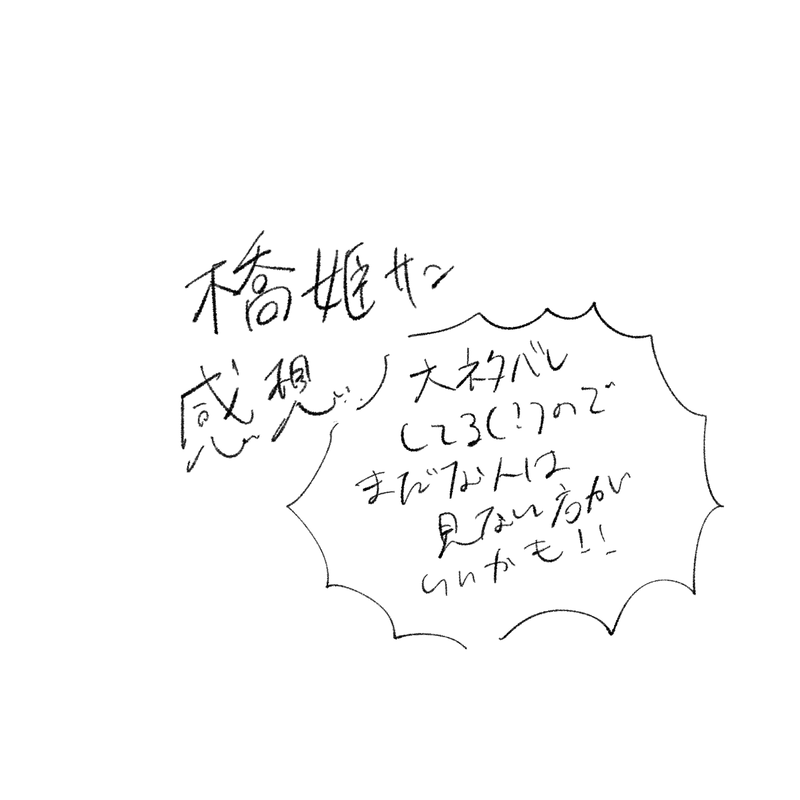 橋姫サン
感想
大ネタバレ
してる(!)ので
まだな人は
見ない方が
いいかも!!